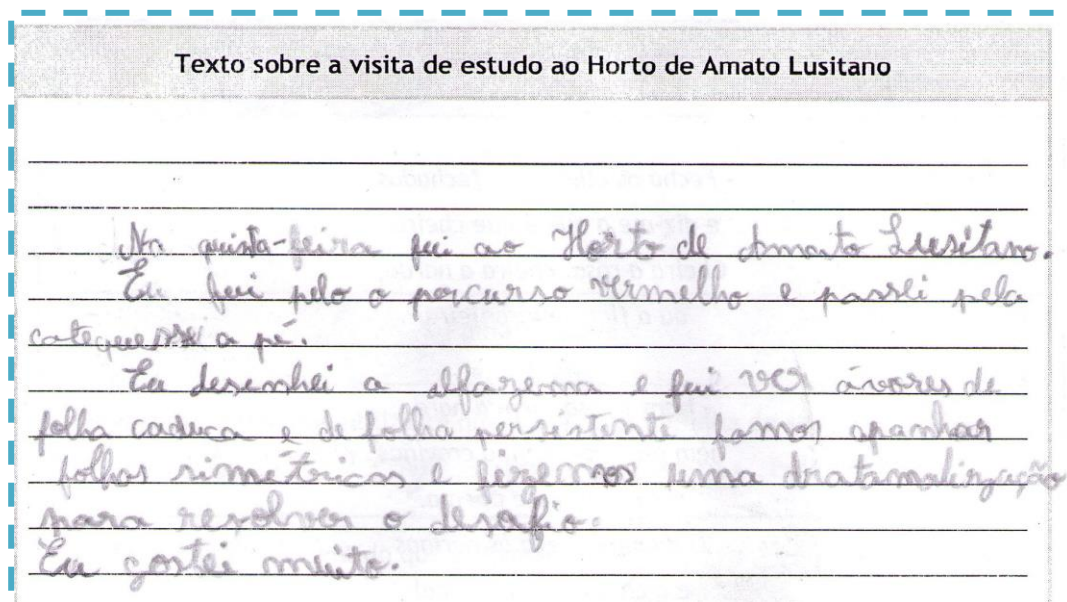 Texto sobre a visita de estudo ao Horto de Amato Lusitano
Na quinta-feira fui ao Horto de Amato Lusitano.
Eu fui pelo o percurso vermelho e passei pela
a pé.
Eu desenhei a alfazema e fui ver ávores de
folha caduca e de folha persistente fomos apanhar
folhas simétricas e fizemos uma dratamalização
para resolver o desafio.
Eu gostei muito.